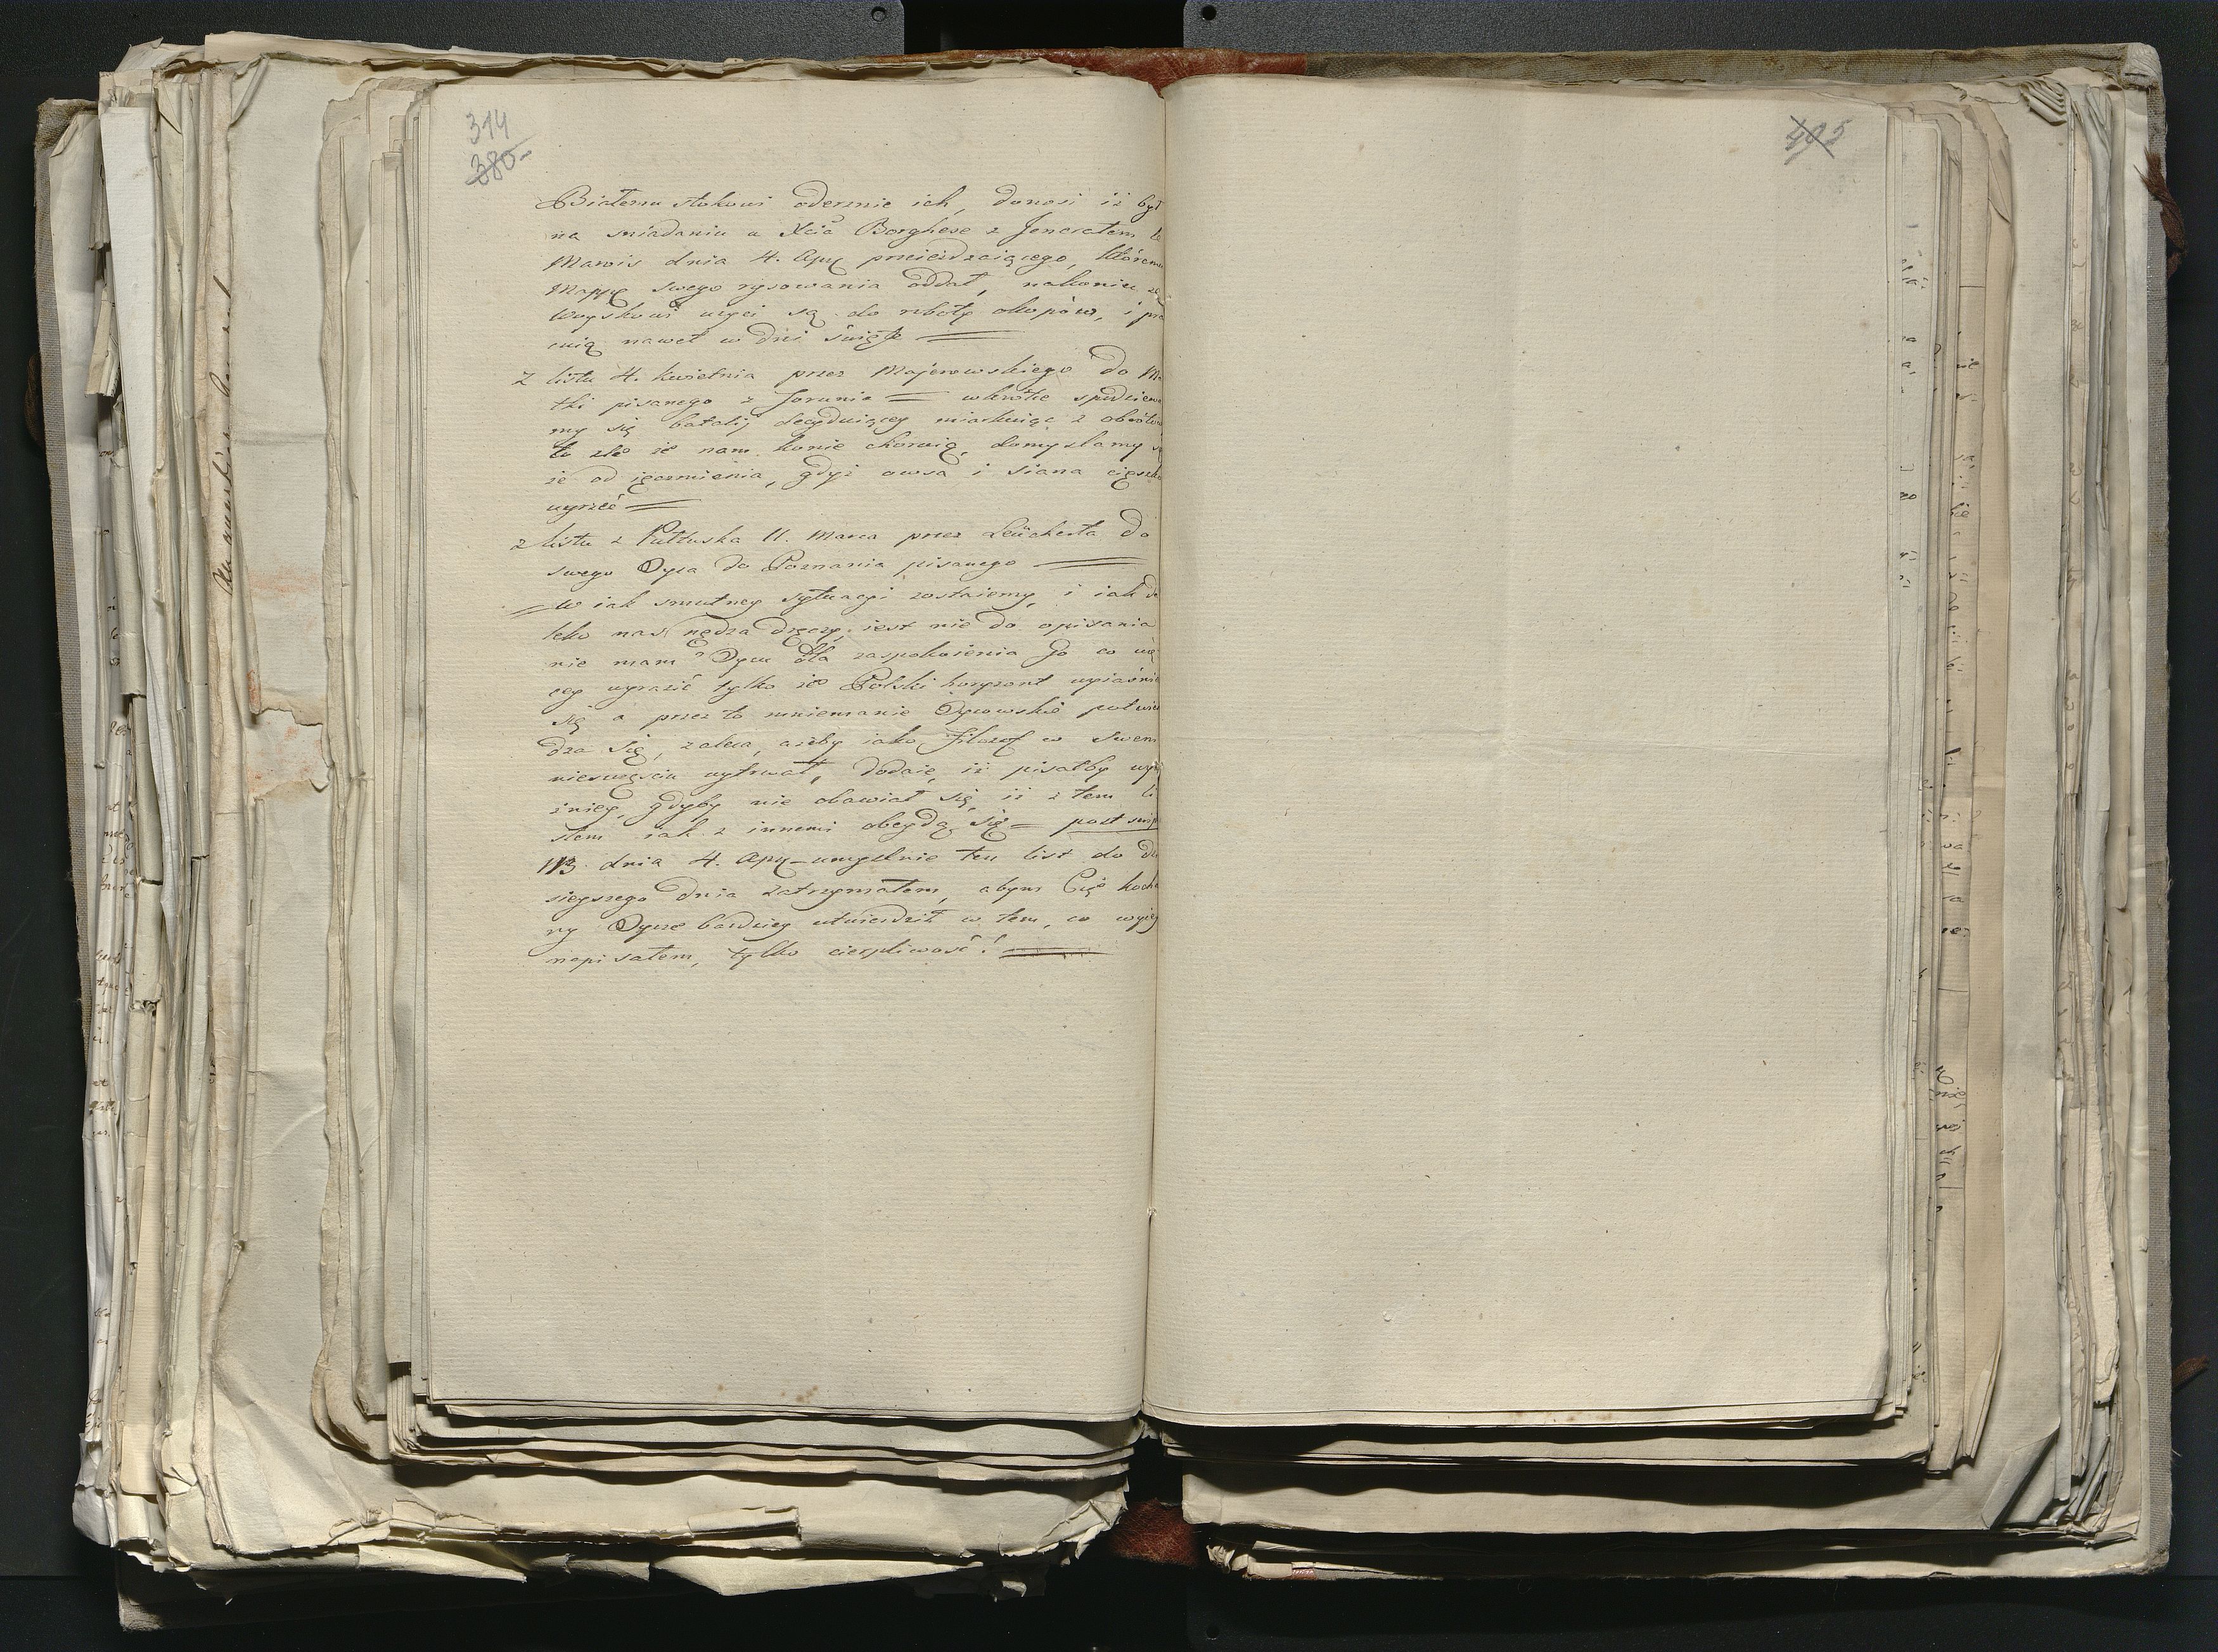 314
380
405
Białemu stokowi odermie ich, donosi iż był
na sniadaniu u Xcia Borghese z Jenerałem le
Marois dnia 4. Apr przeieżdzaiącego, któremu
Mappę swego rysowania oddał, nakoniec że
woyskowi użyci są do roboty okopów, i pra
cuią nawet w dni święte =
z listu 4. kwietnia przez Majerowskiego do Ma
tki pisanego z Torunia = wkrótce spodziewa
my się batalij decyduiącey miarkuiąc z obrotów
to złe że nam konie choruią, domyslamy się
że od ięczmienia, gdyż owsa i siana cięszko
uyrzeć =
z listu z Pułtuska 11. Marca przez Leuckerta do
swego Oyca do Poznania pisanego =
= w iak smutney sytuacyi zostaiemy, i iak da
leko nas nędza dręczy, iest nie do opisania
nie mam Oycu dla zaspokoienia Go co wię
cey wyrazić tylko że Polski horyzont wyiaśnia
się a przez to mniemanie Oycowskie potwier
dza się, zaleca, ażeby iako filozof w swem
nieszczęściu wytrwał, dodaie, iż pisałby wyra
źniey, gdyby nie obawiał się, iż z tem li
stem iak z innemi obeydą się = post scrip
113. dnia 4. Apr umyślnie ten list do dzi
sieyszego dnia zatrzymałem, abym Cię kocha
ny Oycze bardziey utwierdził w tem, co wyżey
napisałem, tylko cierpliwość! =